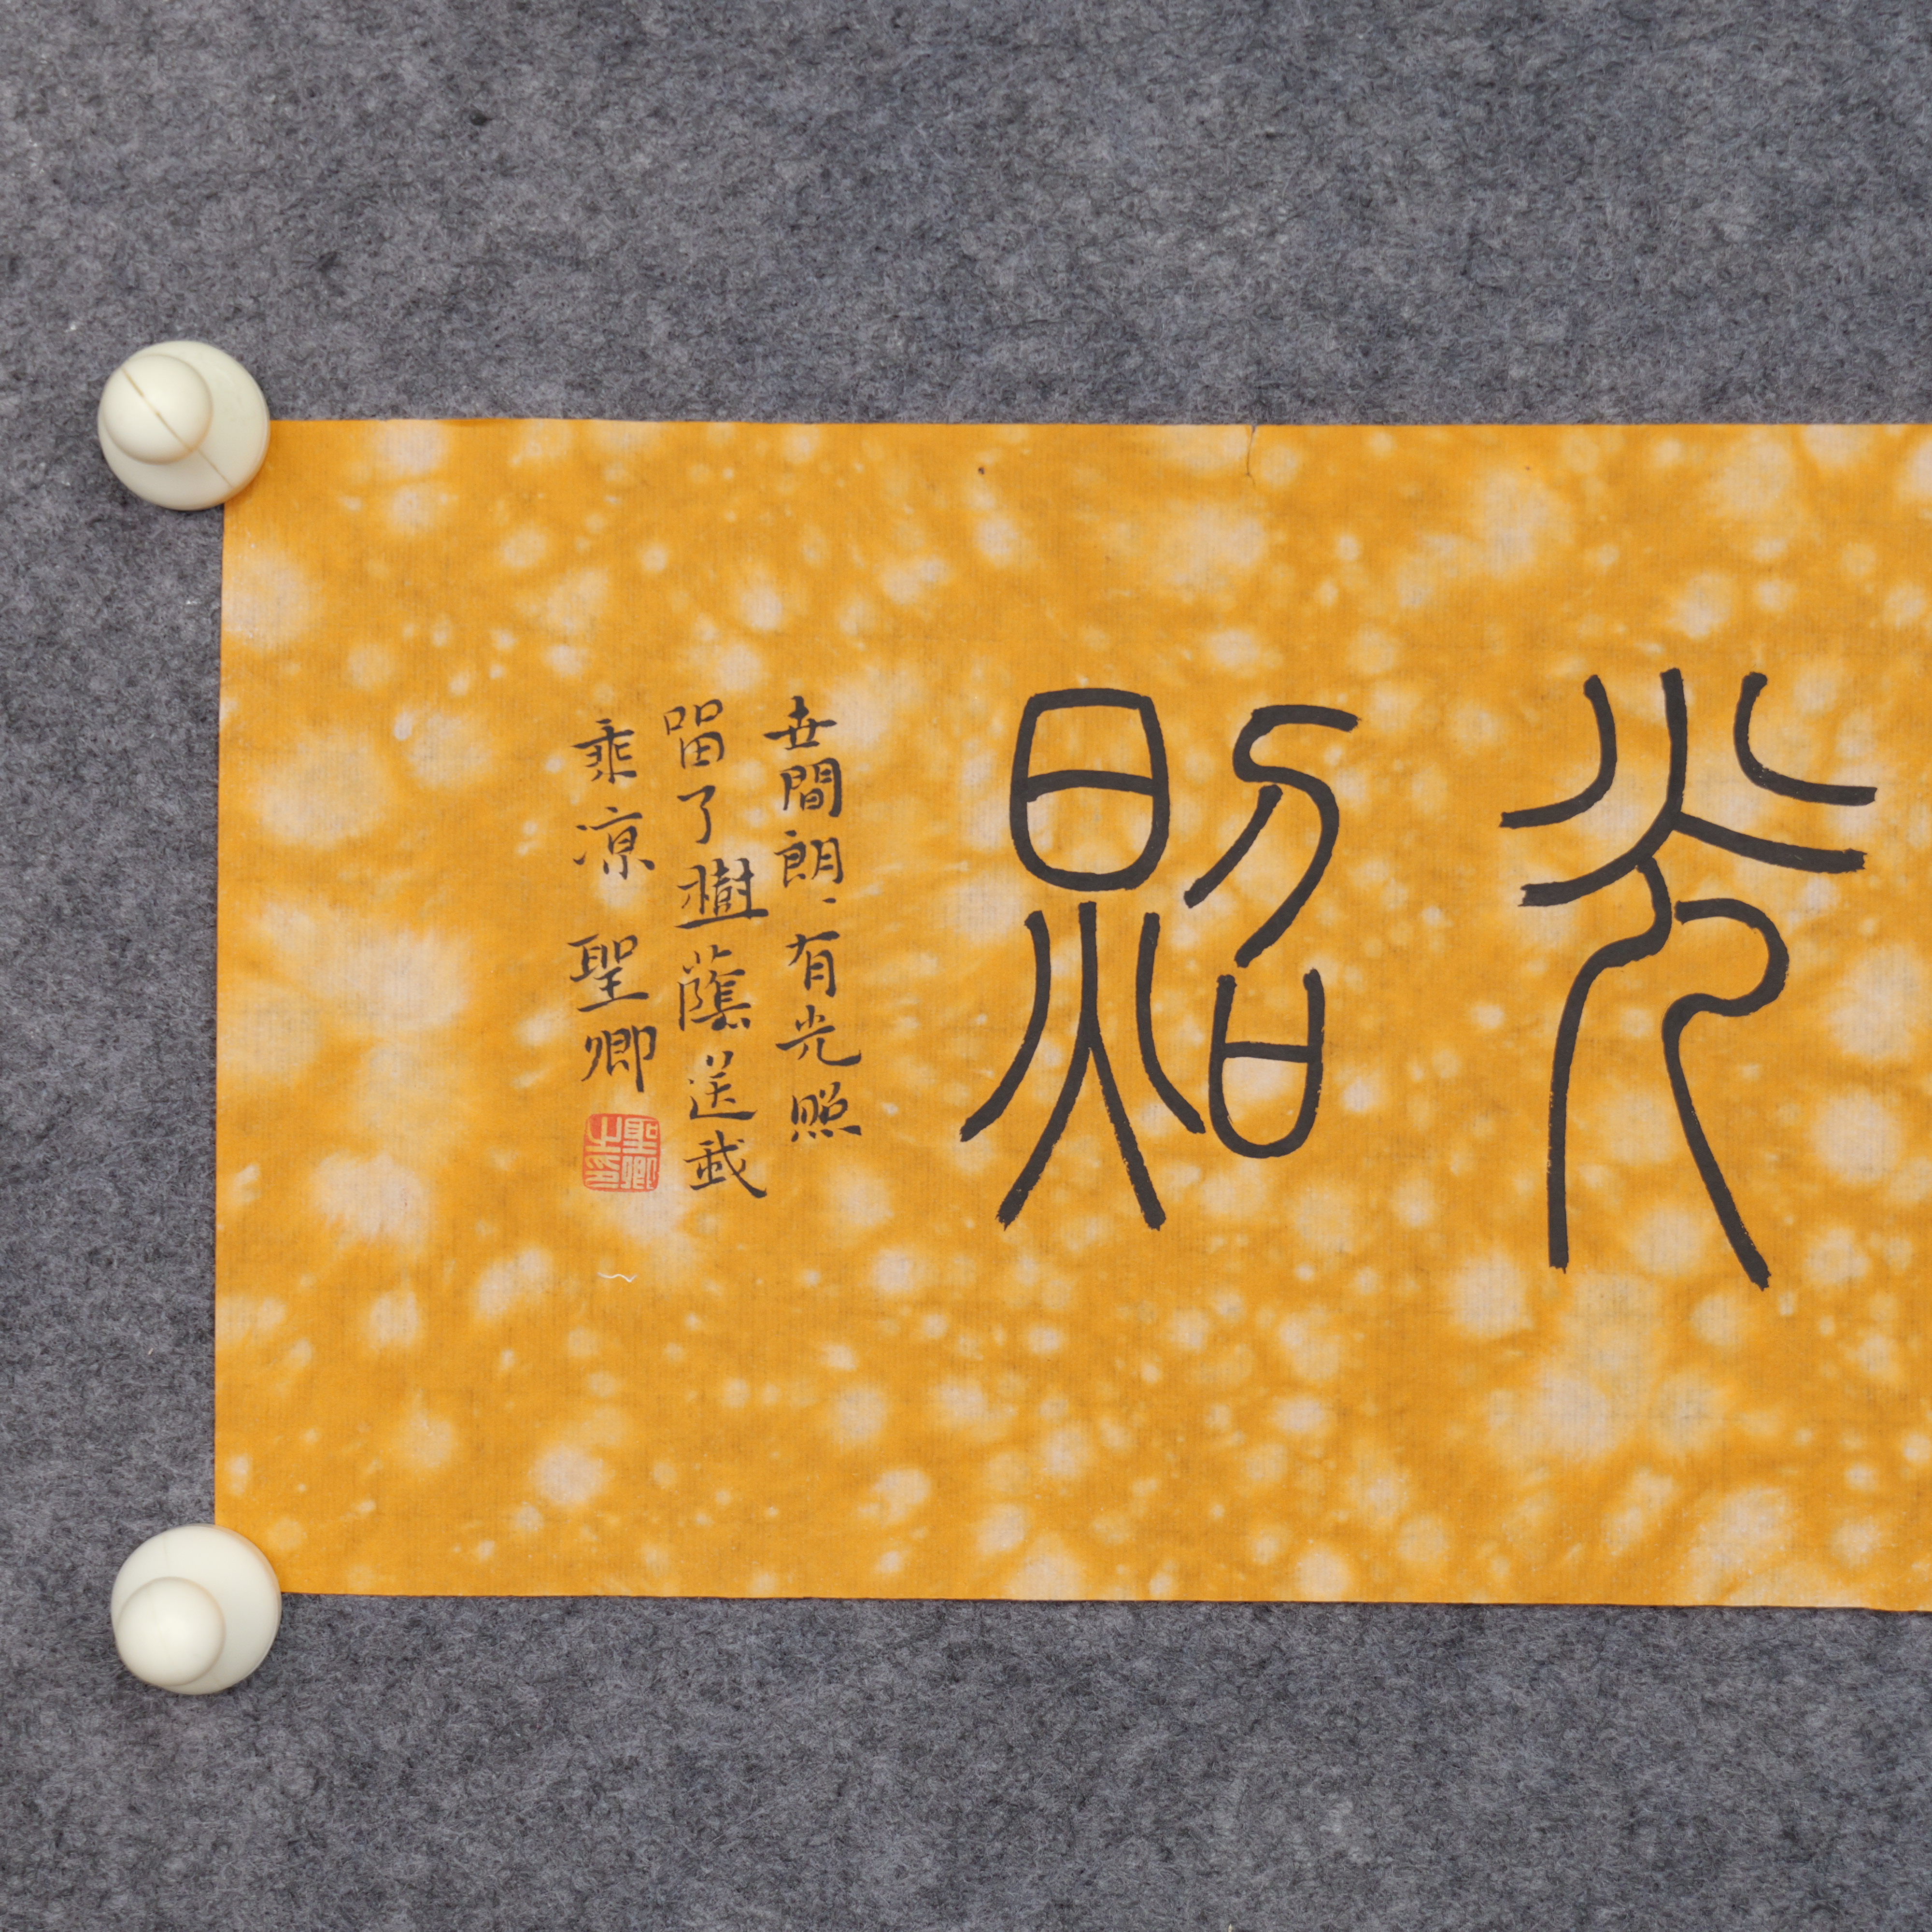 光照
世間朗朗有光照
留了樹蔭送我
乘凉 聖卿
聖卿之印